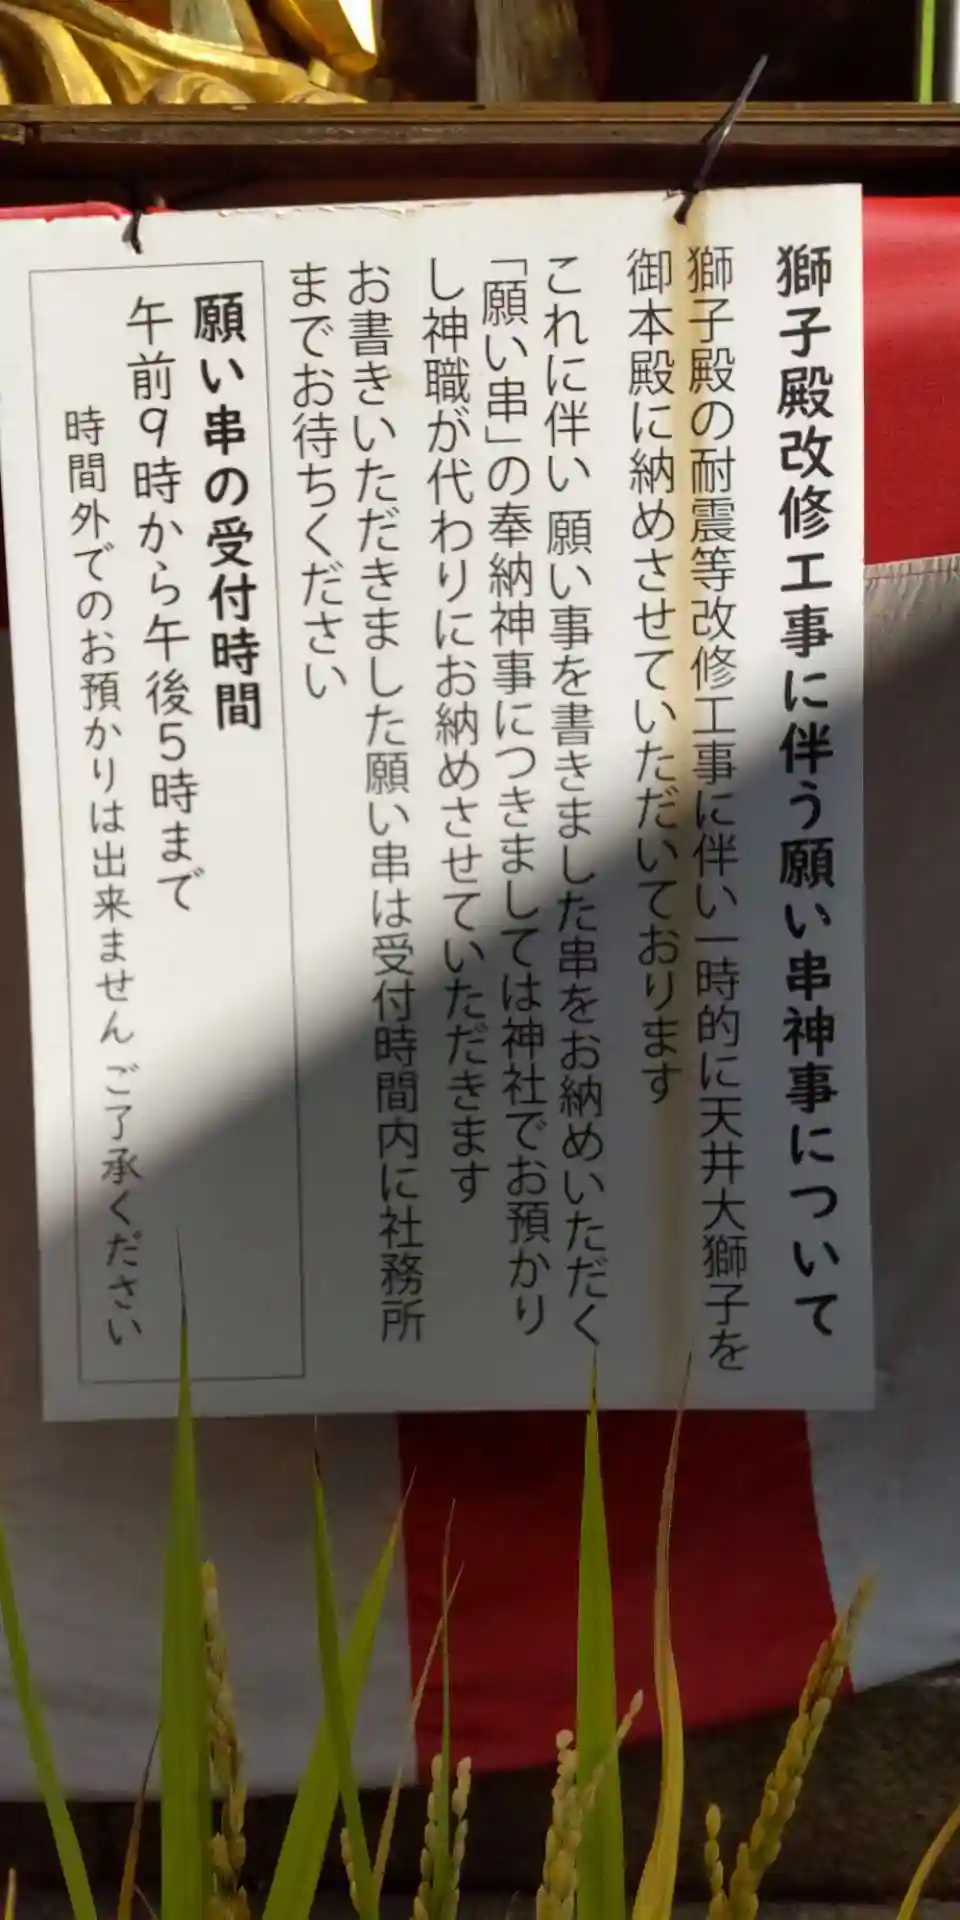 獅子殿改修工事に伴う願い串神事について
獅子殿の耐震等改修工事に伴い一時的に天井大獅子を
御本殿に納めさせていただいております
これに伴い 願い事を書きました串をお納めいただく
「願い串」の奉納神事につきましては神社でお預かり
し神職が代わりにお納めさせていただきます
お書きいただきました願い串は受付時間内に社務所
までお待ちください
願い串の受付時間
午前9時から午後5時まで
時間外でのお預かりは出来ません ご了承ください